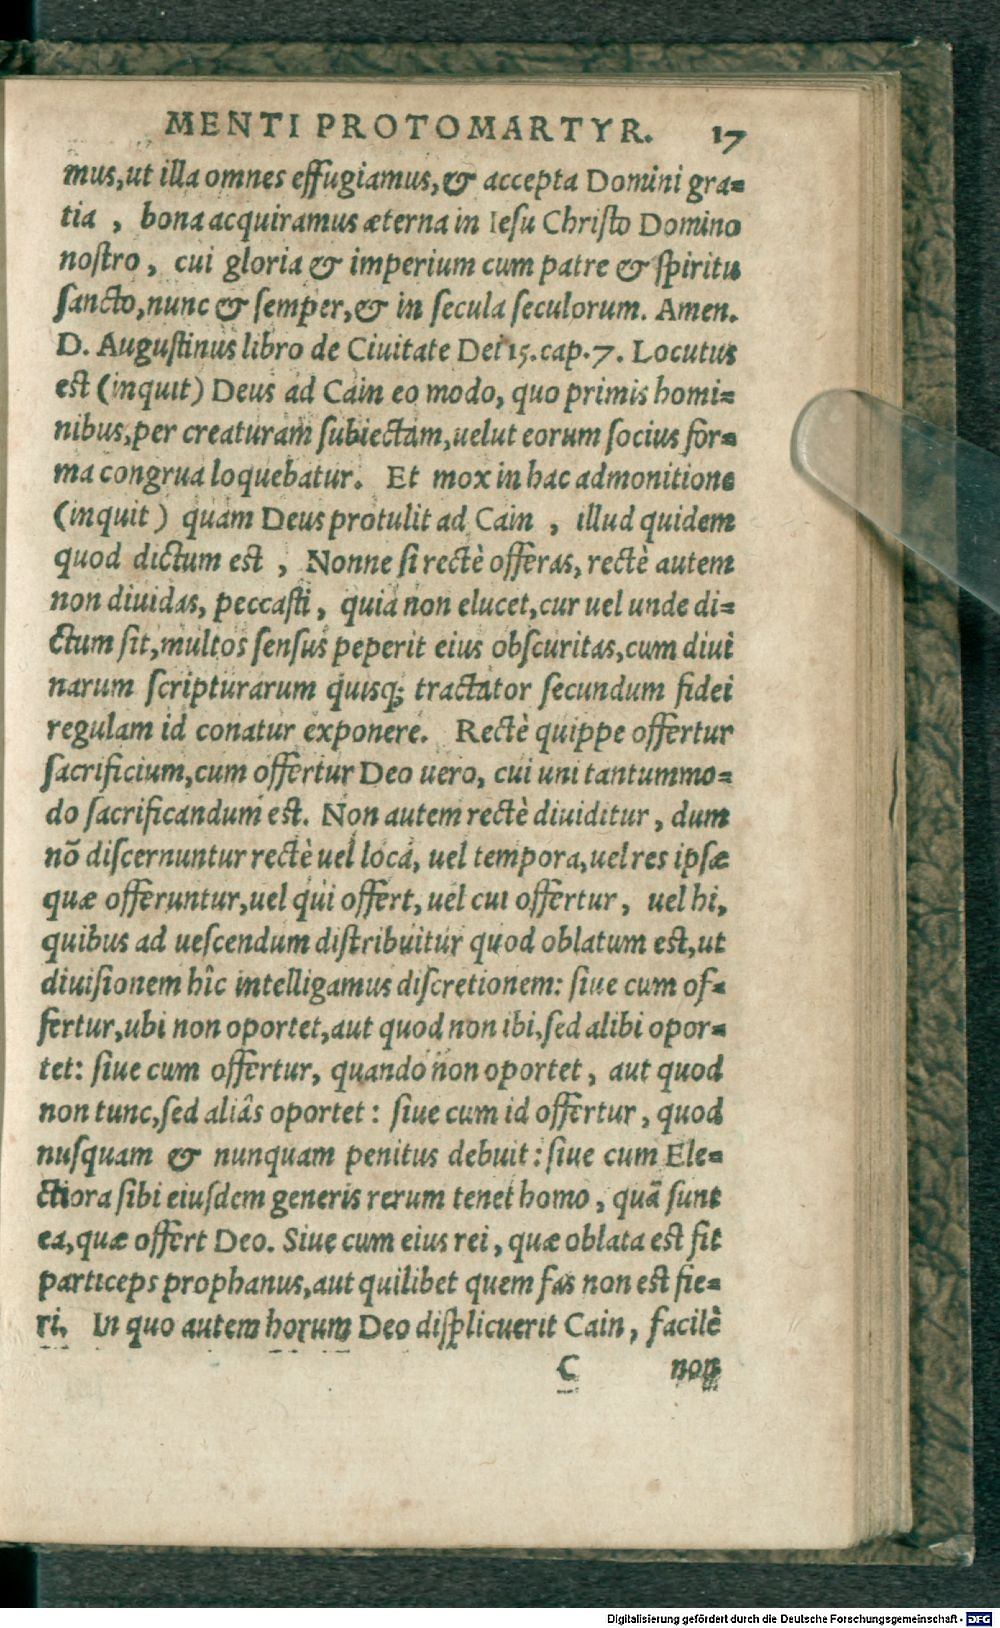 MENTI PROTOMARTYR. 17
mus, ut illa omnes effugiamus, & accepta Domini gra=
tia , bona acquiramus æterna in Iesu Christo Domino
nostro , cui gloria & imperium cum patre & spiritu
sancto, nunc & semper, & in secula seculorum. Amen.
D. Augustinus libro de Ciuitate Dei 15. cap. 7. Locutus
est (inquit) Deus ad Cain eo modo, quo primis homi=
nibus, per creaturam subiectam, uelut eorum socius for=
ma congrua loquebatur. Et mox in hac admonitione
(inquit) quam Deus protulit ad Cain , illud quidem
quod dictum est , Nonne si rectè offeras, rectè autem
non diuidas, peccasti , quia non elucet, cur uel unde di=
ctum sit, multos sensus peperit eius obscuritas, cum diui
narum scripturarum quisq; tractator secundum fidei
regulam id conatur exponere. Rectè quippe offertur
sacrificium, cum offertur Deo uero, cui uni tantummo=
do sacrificandum est. Non autem rectè diuiditur , dum
nō discernuntur rectè uel loca, uel tempora, uel res ipsæ
quæ offeruntur, uel qui offert, uel cui offertur , uel hi,
quibus ad uescendum distribuitur quod oblatum est, ut
diuisionem hîc intelligamus discretionem: siue cum of=
fertur, ubi non oportet, aut quod non ibi, sed alibi opor=
tet: siue cum offertur, quando non oportet , aut quod
non tunc, sed aliâs oportet : siue cum id offertur , quod
nusquam & nunquam penitus debuit : siue cum Ele=
ctiora sibi eiusdem generis rerum tenet homo , quã sunt
ea, quæ offert Deo. Siue cum eius rei , quæ oblata est fit
particeps prophanus, aut quilibet quem fas non est fie=
ri. In quo autem horum Deo displicuerit Cain , facilè
C non
Digitalisierung gefördert durch die Deutsche Forschungsgemeinschaft - DFG